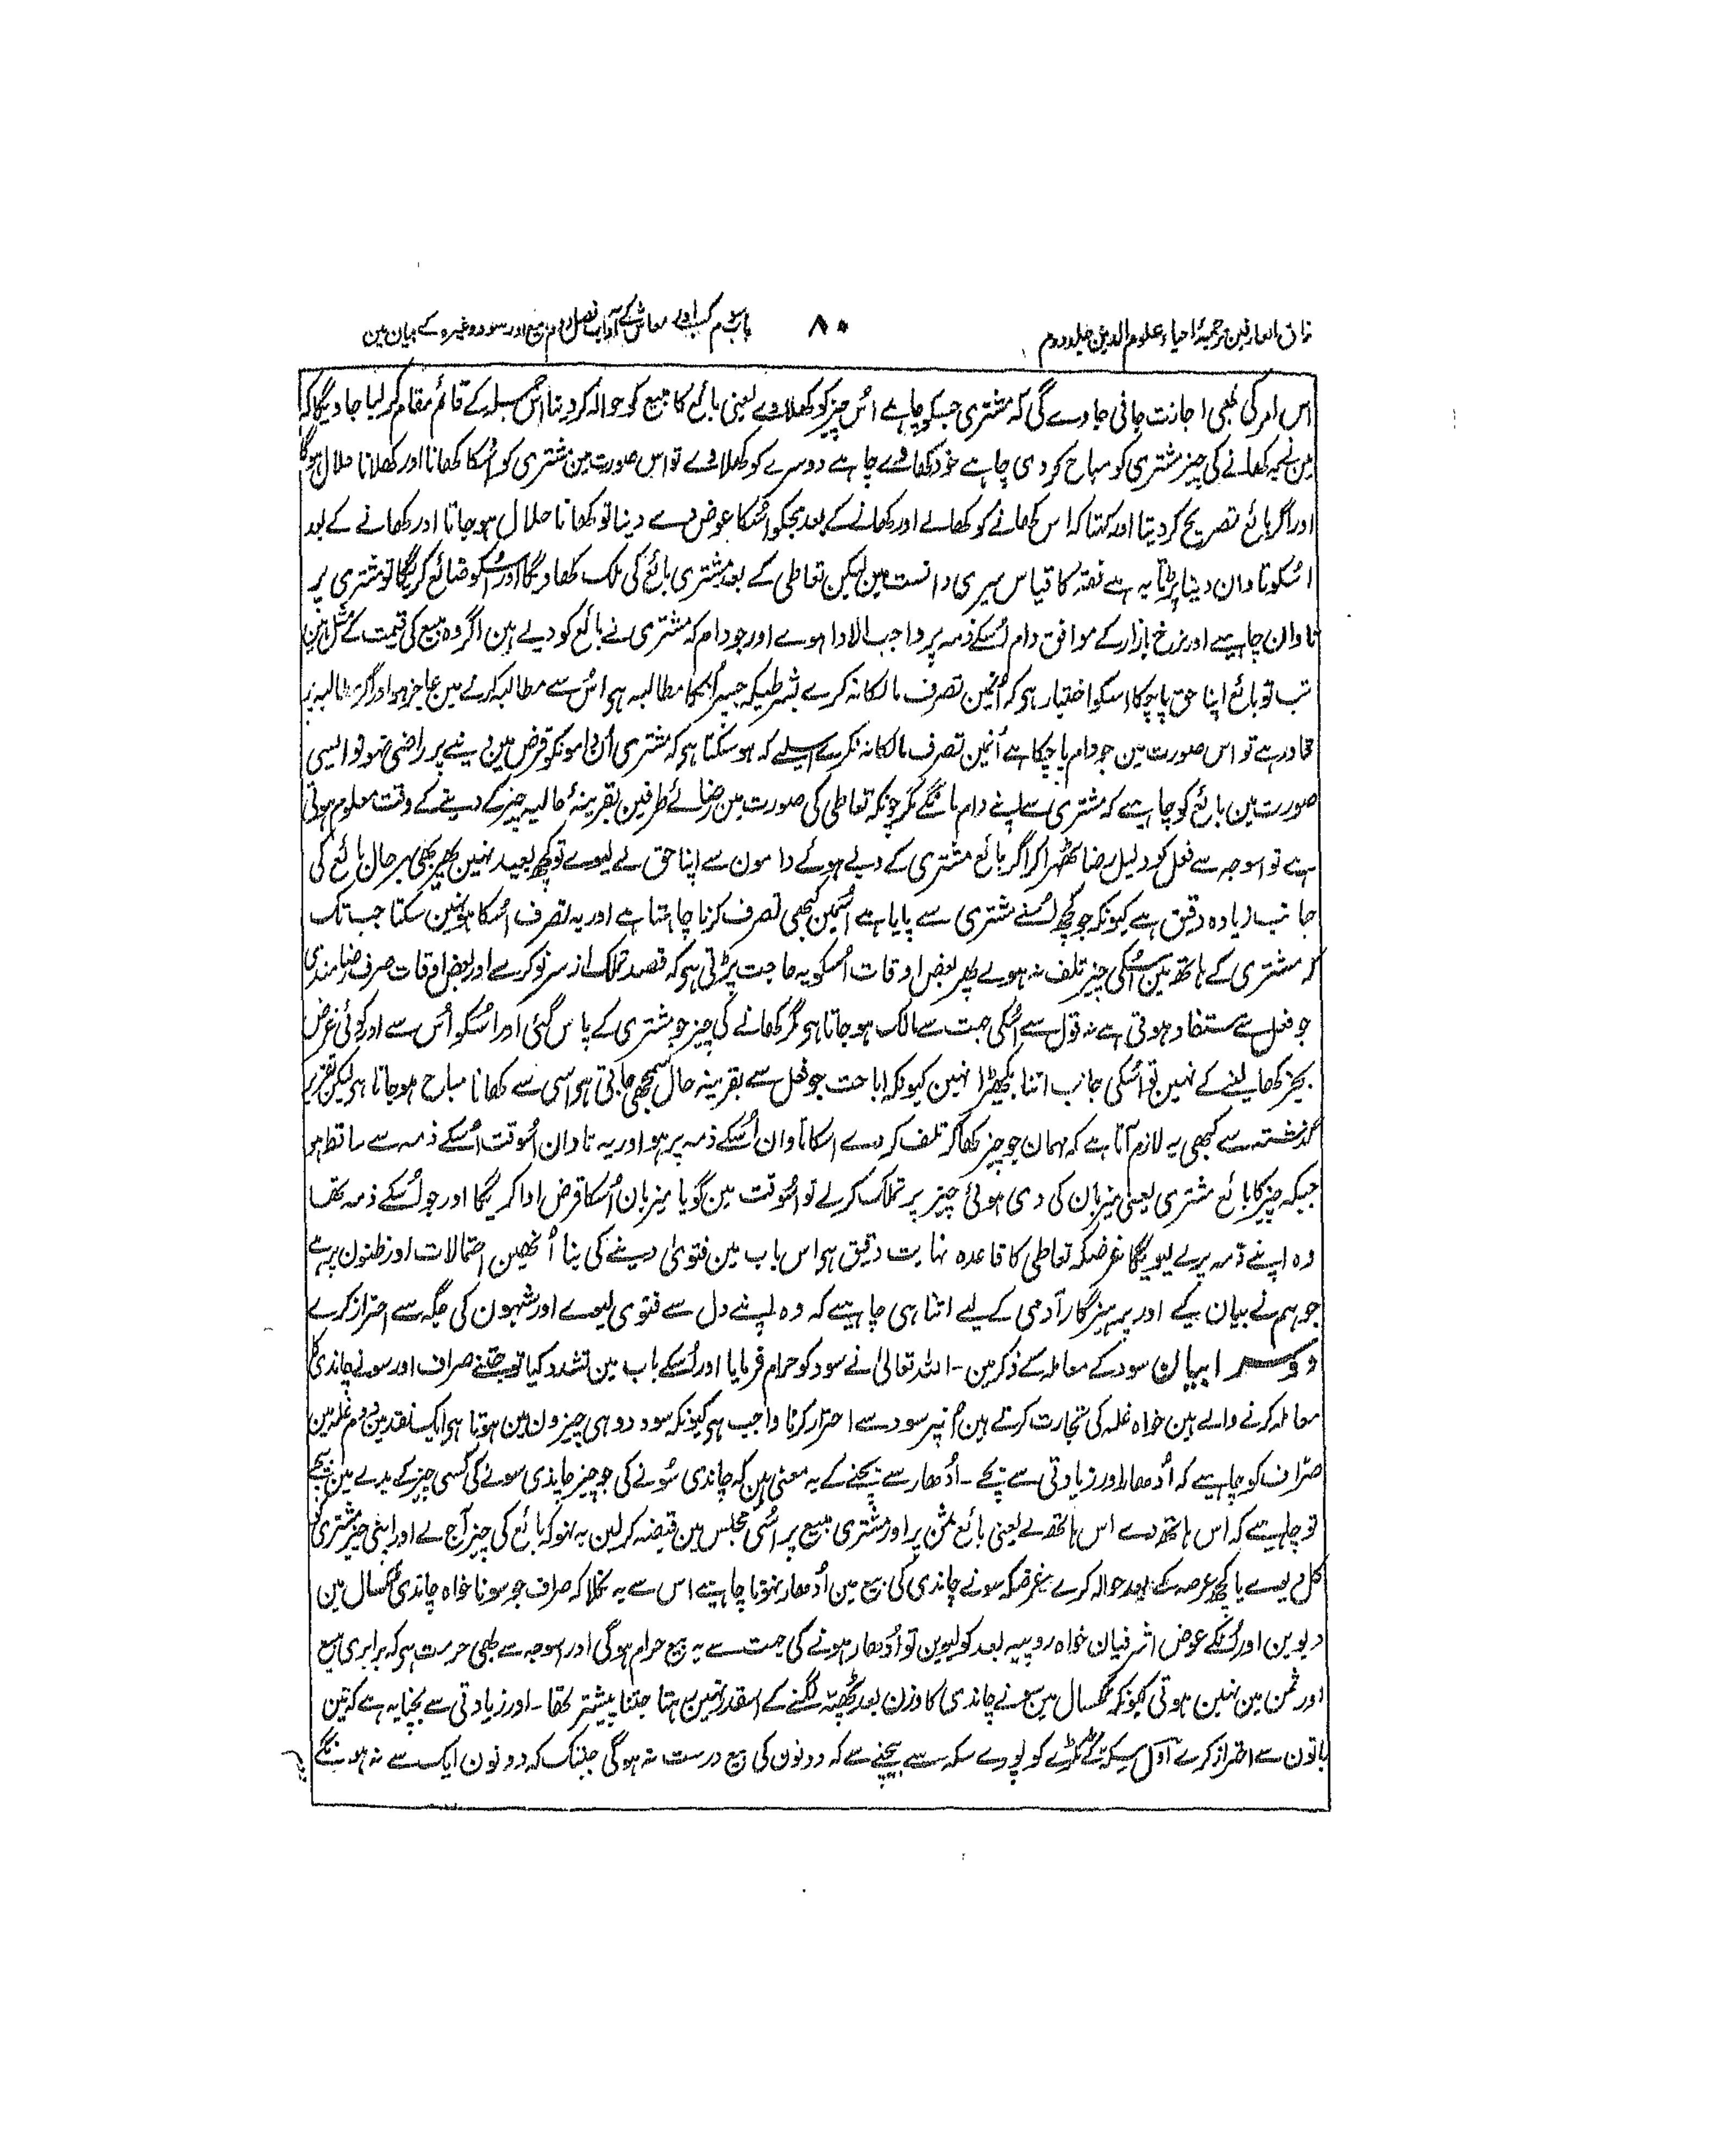 مذاق العارفین ترجمۂ احیاء علوم الدین جلد دوم
۸۰
باب سوم کسب اور معاش کے آداب فصل دوم بیع اور سود وغیرہ کے بیان مین
اس امر کی بھی اجازت جانی جاوے گی کہ مشتری جسکو چاہے اُس چیز کو کھلاوے یعنی بائع کا مبیع کو حوالہ کر دینا اس جملہ کے قائم مقام کر لیا جاویگا کہ
مین نے یہ کھانے کی چیز مشتری کو مباح کر دی چاہے خود کھاوے چاہے دوسرے کو کھلاوے تو اس صورت مین مشتری کو اُسکا کھانا اور کھلانا حلال ہوگا
اور اگر بائع تصریح کر دیتا اور کہتا کہ اس کھانے کو کھالے اور کھانے کے بعد مجکو اُسکا عوض دے دینا تو کھانا حلال ہو جاتا اور کھانے کے بعد
اُسکو تاوان دینا پڑتا یہ ہے فقہ کا قیاس میری دانست مین لیکن تعاطی کے بعد مشتری بائع کی ملک کھاویگا اور اُسکو ضائع کریگا تو مشتری پر
تاوان چاہیے اور نرخ بازار کے موافق دام اُسکے ذمہ پر واجب الادا ہوے اور جو دام کہ مشتری نے بائع کو دیے ہین اگر وہ مبیع کی قیمت کے مثل ہین
تب تو بائع اپنا حق پا چکا اسکو اختیار ہو کہ اُنمین تصرف مالکانہ کرے بشرطیکہ جسپر اُسکا مطالبہ ہو اُس سے مطالبہ کرنے مین عاجز ہو اور اگر مطالبہ پر
قادر ہے تو اس صورت مین جو دام پا چکا ہے اُنمین تصرف مالکانہ نکرے اسلیے کہ ہو سکتا ہی کہ مشتری اُن دامونکو قرض مین دینے پر راضی نہو تو ایسی
صورت مین بائع کو چاہیے کہ مشتری سے اپنے دام مانگے مگر چونکہ تعاطی کی صورت مین رضائے طرفین بقرینۂ حالیہ چیز کے دینے کے وقت معلوم ہوتی
ہے تو اسوجہ سے فعل کو دلیل رضا ٹھہرا کر اگر بائع مشتری کے دیے ہوئے دامون سے اپنا حق لے لیوے تو کچھ بعید نہین پھر بھی بہر حال بائع کی
جانب زیادہ دقیق ہے کیونکہ جو کچھ اُسنے مشتری سے پایا ہے اُسمین کبھی تصرف کرنا چاہتا ہے اور یہ تصرف اُسکا ہو نہین سکتا جب تک
کہ مشتری کے ہاتھ مین اُسکی چیز تلف نہ ہووے پھر بعض اوقات اُسکو یہ حاجت پڑتی ہو کہ قصد تملک از سر نو کرے اور بعض اوقات صرف رضامندی
جو فعل سے مستفاد ہوتی ہے نہ قول سے اُسکی جہت سے مالک ہو جاتا ہو مگر کھانے کی چیز جو مشتری کے پاس گئی اور اُسکو اُس سے اور کوئی غرض
بجز کھا لینے کے نہین تو اُسکی جانب اتنا بکھیڑا نہین کیونکہ اباحت جو فعل سے بقرینہ حال سمجھی جاتی ہو اسی سے کھانا مباح ہو جاتا ہو لیکن تقریر
گذشتہ سے کبھی یہ لازم آتا ہے کہ مہمان جو چیز کھا کر تلف کر دے اسکا تاوان اُسکے ذمہ پر ہو اور یہ تاوان اُسوقت اُسکے ذمہ سے ساقط ہو
جبکہ چیز کا بائع مشتری یعنی میزبان کی دی ہوئی چیز پر تملک کرلے تو اُسوقت مین گویا میزبان اُسکا قرض ادا کریگا اور جو اُسکے ذمہ تھا
وہ اپنے ذمہ پر لے لیویگا غرضکہ تعاطی کا قاعدہ نہایت دقیق ہو اس باب مین فتویٰ دینے کی بنا اُنھین احتمالات اور ظنون پر ہے
جو ہم نے بیان کیے اور پرہیزگار آدمی کے لیے اتنا ہی چاہیے کہ وہ اپنے دل سے فتوی لیوے اور شبہون کی جگہ سے احتراز کرے
دوسرا بیان سود کے معاملہ کے ذکر مین - اللہ تعالیٰ نے سود کو حرام فرمایا اور اُسکے باب مین تشدد کیا تو جتنے صراف اور سونے چاندی کا
معاملہ کرنے والے ہین خواہ غلہ کی تجارت کرتے ہین اُنپر سود سے احتراز کرنا واجب ہو کیونکہ سود دو ہی چیزون مین ہوتا ہو ایک نقد مین دوم غلہ مین
صرّاف کو چاہیے کہ اُدھار اور زیادتی سے بچے - اُدھار سے بچنے کے یہ معنی ہین کہ چاندی سونے کی جو چیز چاندی سونے کی کسی چیز کے بدلے مین بیچے
تو چاہیے کہ اس ہاتھ دے اس ہاتھ لے یعنی بائع ثمن پر اور مشتری مبیع پر اُسی مجلس مین قبضہ کر لین یہ نہو کہ بائع کی چیز آج لے اور اپنی چیز مشتری کو
کل دیوے یا کچھ عرصہ کے بعد حوالہ کرے غرضکہ سونے چاندی کی بیع مین اُدھار نہونا چاہیے اس سے یہ نکلا کہ صراف جو سونا خواہ چاندی ٹکسال مین
دیوین اور اُسکے عوض اشرفیان خواہ روپیہ بعد کو لیوین تو اُدھار ہونے کی جہت سے یہ بیع حرام ہوگی اور اسوجہ سے بھی حرمت ہو کہ برابری مبیع
اور ثمن مین نہین ہوتی کیونکہ ٹکسال مین سونے چاندی کا وزن بعد ٹھپّہ لگنے کے اسقدر نہین رہتا جتنا پیشتر تھا - اور زیادتی سے بچنا یہ ہے کہ تین
باتون سے احتراز کرے اول سکہ کے ٹکڑے کو پورے سکہ سے بیچنے سے کہ دونون کی بیع درست نہ ہوگی جبتک کہ دونون ایک سے نہ ہونگے